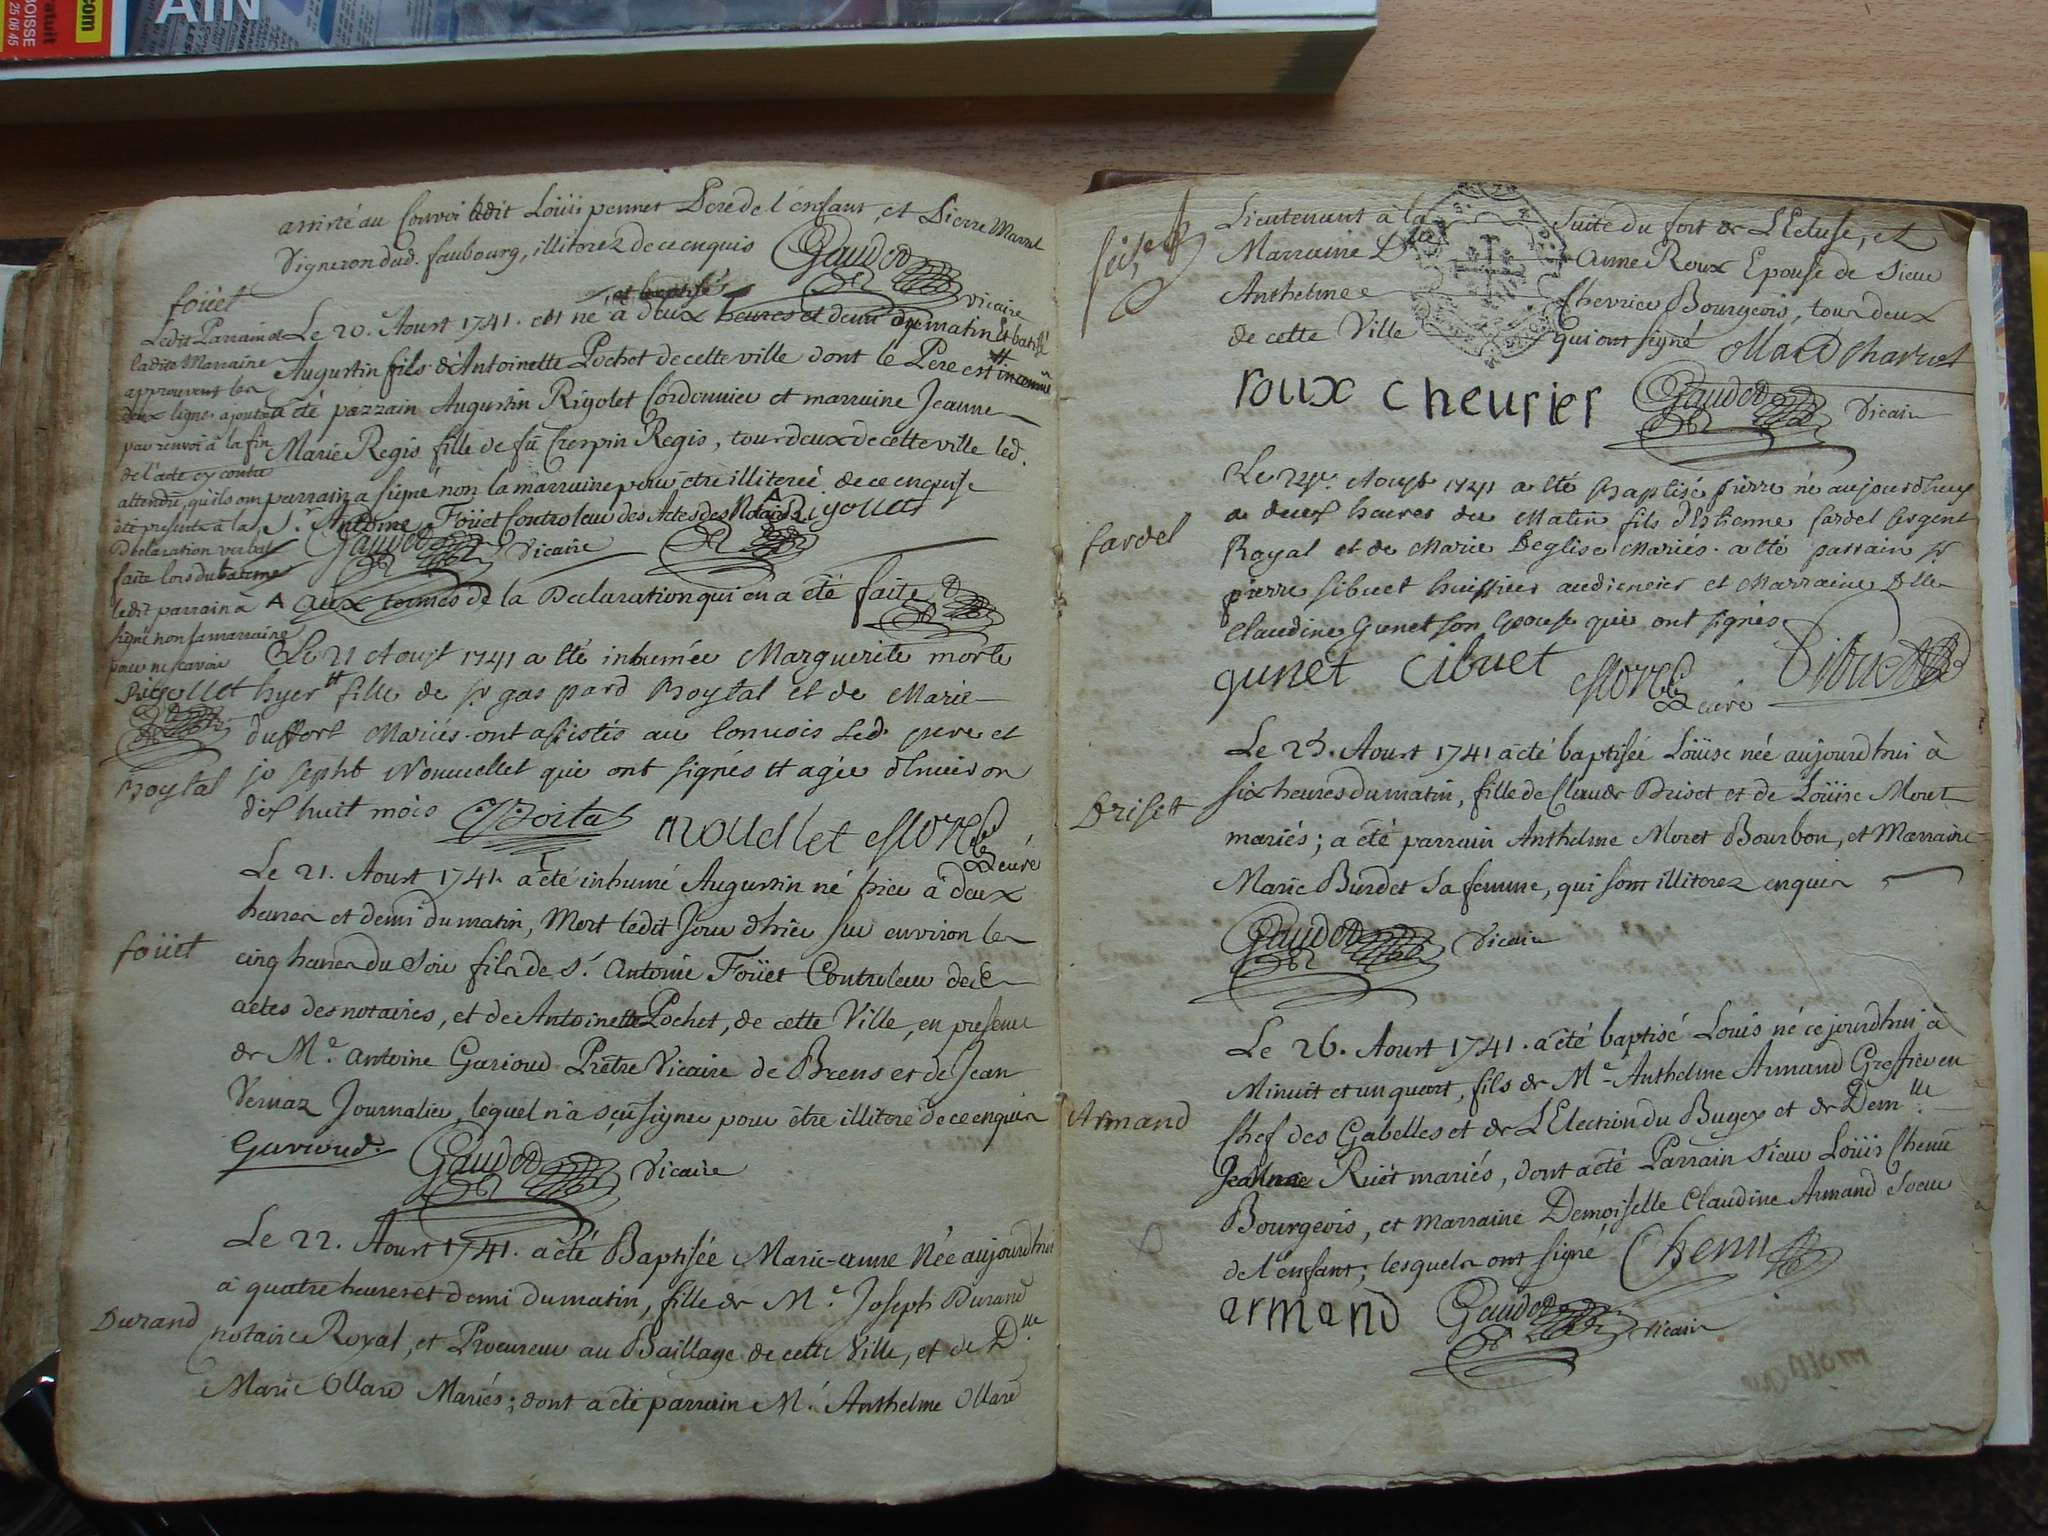 AIN
assisté au Convoi ledit Loüis pennet Pere de l'enfant, et Pierre Marrel
Vigneron dud. faubourg, illiterez de ce enquis Gaudet
Vicaire
foüet
Le 20. Aoust 1741. est né à deux heures et demi du matin et batisé
Augustin fils d'Antoinette Pochet de cette ville dont le Pere est inconnu
a été parrain Augustin Rigolet Cordonnier et marraine Jeanne
Marie Regis fille de fû Crespin Regis, tous deux de cette ville led.
parrain a signé non la marraine pour être illiterée de ce enquise
Sr. Antoine Foüet Controleur des Actes des Notaires Rigollet
Gaudet Vicaire
A aux termes de la Declaration qui en a été faite
Ledit Parrain et
ladite Marraine
approuvent les
deux lignes ajoutées
par renvoi à la fin
de l'acte cy contre
attendu, qu'ils ont
été presents à la
Declaration verbale
faite lors du bateme
ledit parrain a
signé non la marraine
pour ne scavoir
Rigollet
Le 21 Aoust 1741 a été inhumée Marguerite morte
hyer fille de sr gaspard Boytal et de Marie
duffort Mariés. ont assistés au convois Led. pere et
joseph Nouvellet qui ont signés agée d'environ
dix huit mois Boital nouellet
Curé
Boytal
Le 21. Aoust 1741. a été inhumé Augustin né hier à deux
heures et demi du matin, Mort ledit Jour d'hier sur environ les
cinq heures du Soir fils de Sr. Antoine Foüet Controleur des
actes des notaires, et de Antoinette Pochet, de cette Ville, en presence
de Me. Antoine Garioud Prêtre Vicaire de Brens et de Jean
Vernaz Journalier, lequel n'a sçû signer pour être illiteré de ce enquis
foüet
Garioud. Gaudet Vicaire
Le 22. Aoust 1741. a été Baptisée Marie-anne Née aujourdhui
à quatre heures et demi du matin, fille de Me. Joseph Durand
notaire Royal, et Procureur au Baillage de cette Ville, et de Dlle
Marie Ollard Mariés; dont a été parrain Me. Anthelme Ollard
Durand
Lieutenant à la Suite du fort de L'Ecluse, et
Marraine Dlle Anne Roux Epouse de Sieur
Anthelme Chevrier Bourgeois, tous deux
de cette Ville Qui ont signé Ollard Charvet
roux cheurier Gaudet Vicaire
Le 24e. Aoust 1741 a été Baptisé pierre né aujourdhuy
a deux heures du Matin fils d'Estienne fardel sergent
Royal et de Marie Deglise Mariés. a été parrain sr
pierre sibuet huissier audiencier et Marraine Dlle
Claudine Gunet son Epouse qui ont signés
fardel
gunet cibuet Sibuet
Curé
Le 25. Aoust 1741 a été baptisée Loüise née aujourdhui à
six heures du matin, fille de Claude Briset et de Loüise Moret
mariés; a été parrain Anthelme Moret Bourbon, et Marraine
Marie Burdet sa femme, qui sont illiterez enquis
Brisett
Gaudet Vicaire
Le 26. Aoust 1741. a été baptisé Louis né ce jourdhui à
Minuit et un quart, fils de Me. Anthelme Armand Greffier en
Chef des Gabelles et de L'Election du Bugey et de Demlle
Jeanne Rüet mariés, dont a été Parrain Sieur Loüis Chenu
Bourgeois, et Marraine Demoiselle Claudine Armand Soeur
de l'enfant; lesquels ont signé Chenu
Armand
armand Gaudet Vicaire